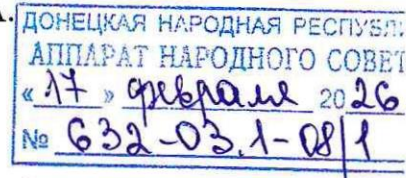 ДОНЕЦКАЯ НАРОДНАЯ РЕСПУБЛ
АППАРАТ НАРОДНОГО СОВЕТ
« 17 » февраля 20 26
№ 632-03.1-08/1